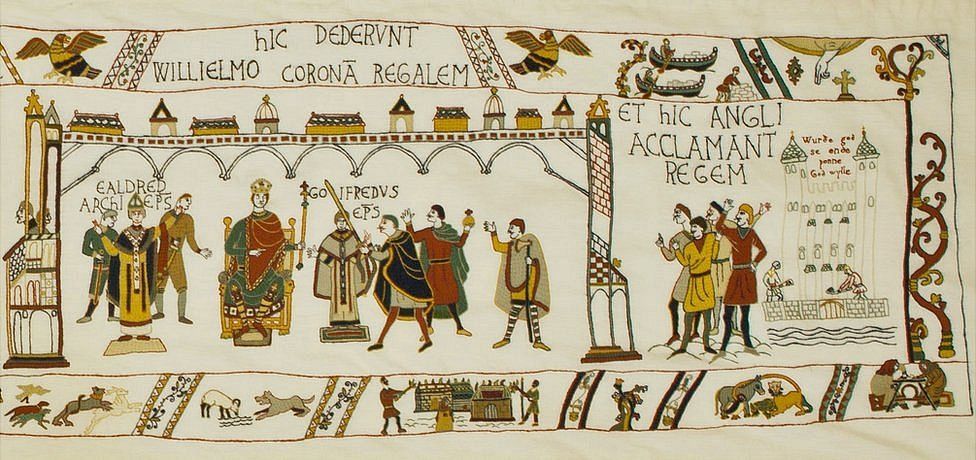 hIC DEDERVNT
WILLIELMO CORONĀ REGALEM
EALDRED
ARCHI EPS̄
GO IFREDVS
EPS̄
ET hIC ANGLI
ACCLAMANT
REGEM
Wurde god
se ende
þonne
God wylle